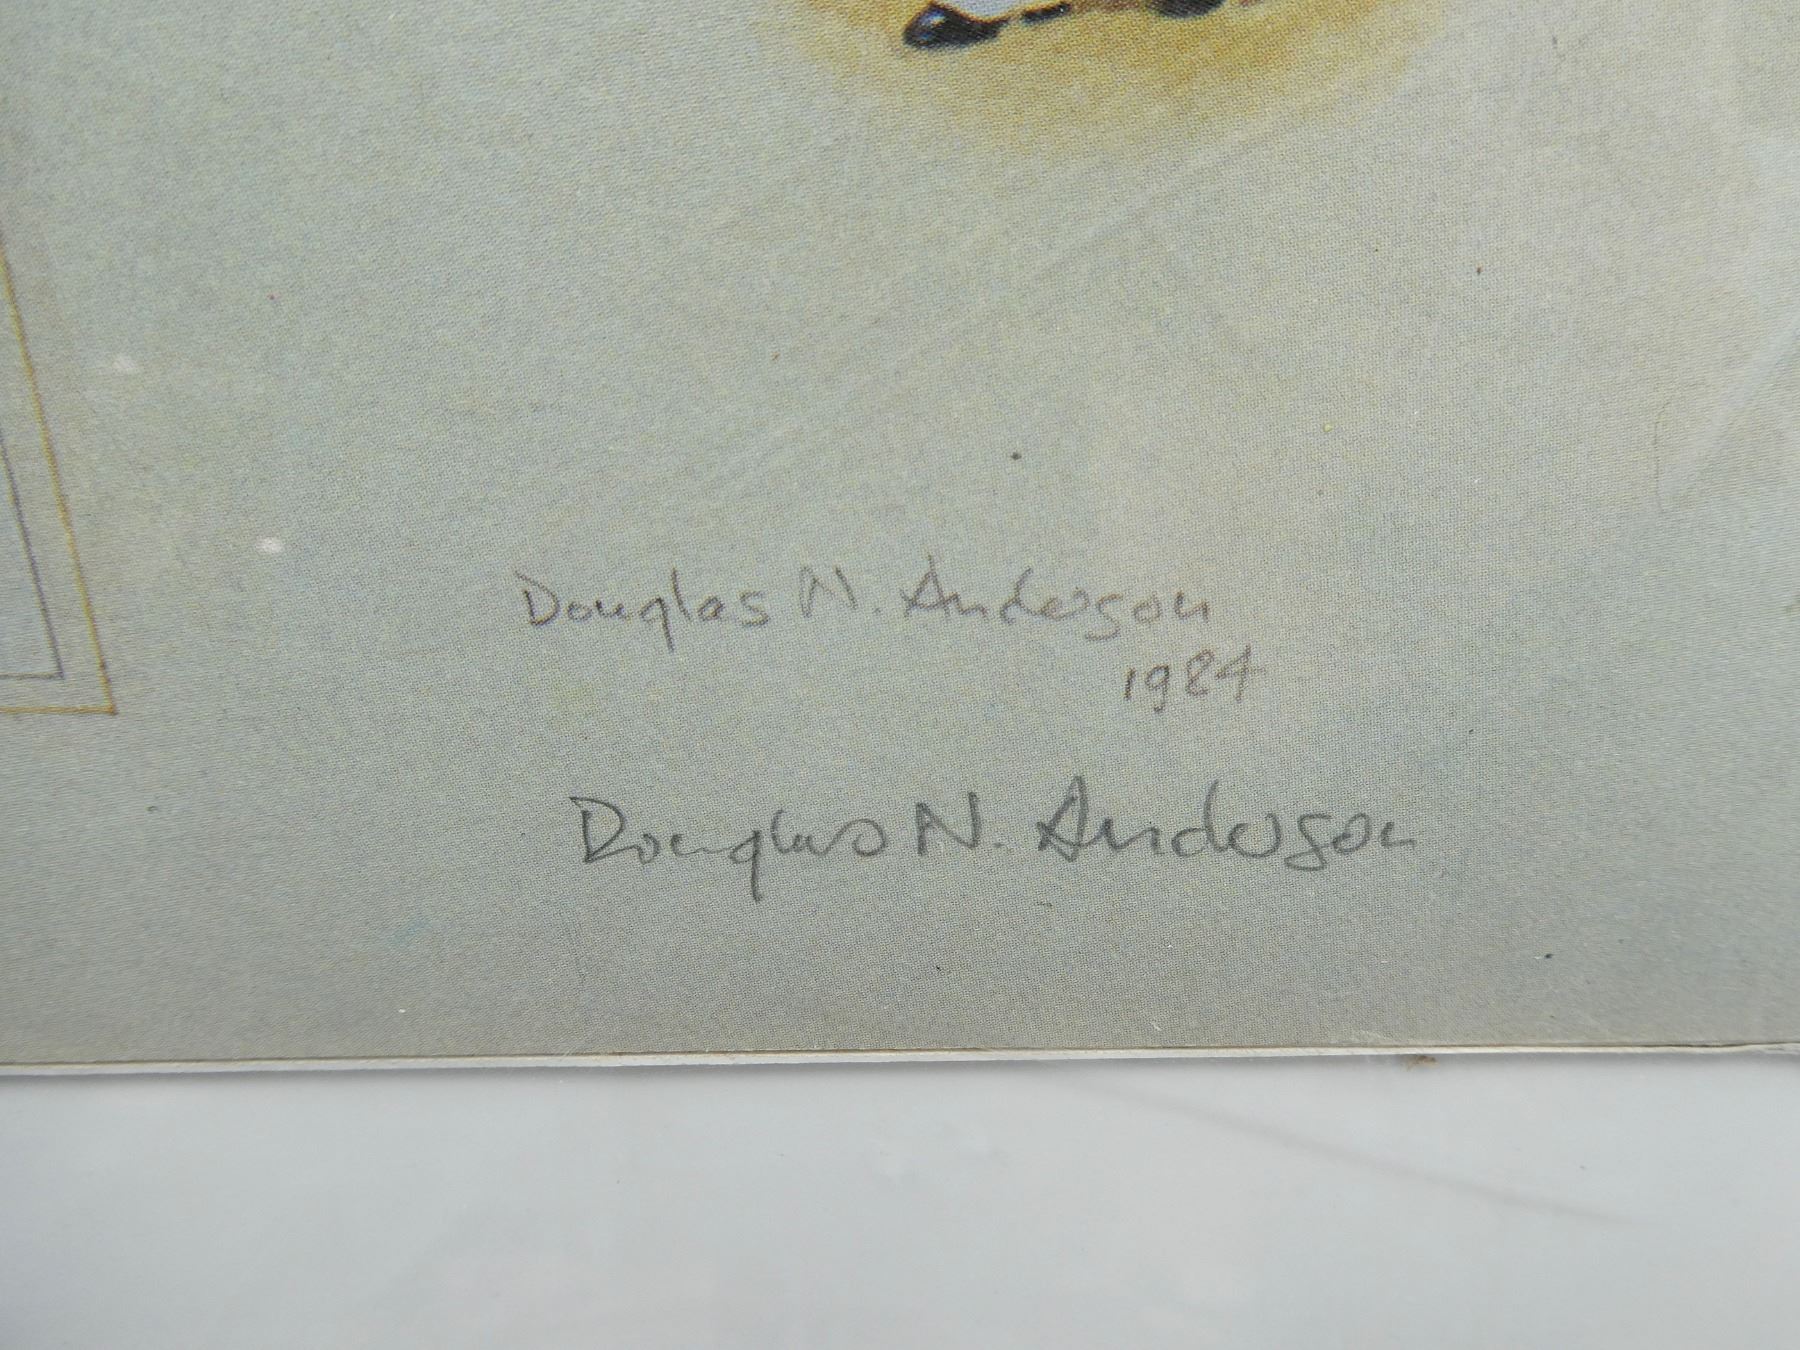 Douglas N. Anderson
1984
Douglas N. Anderson